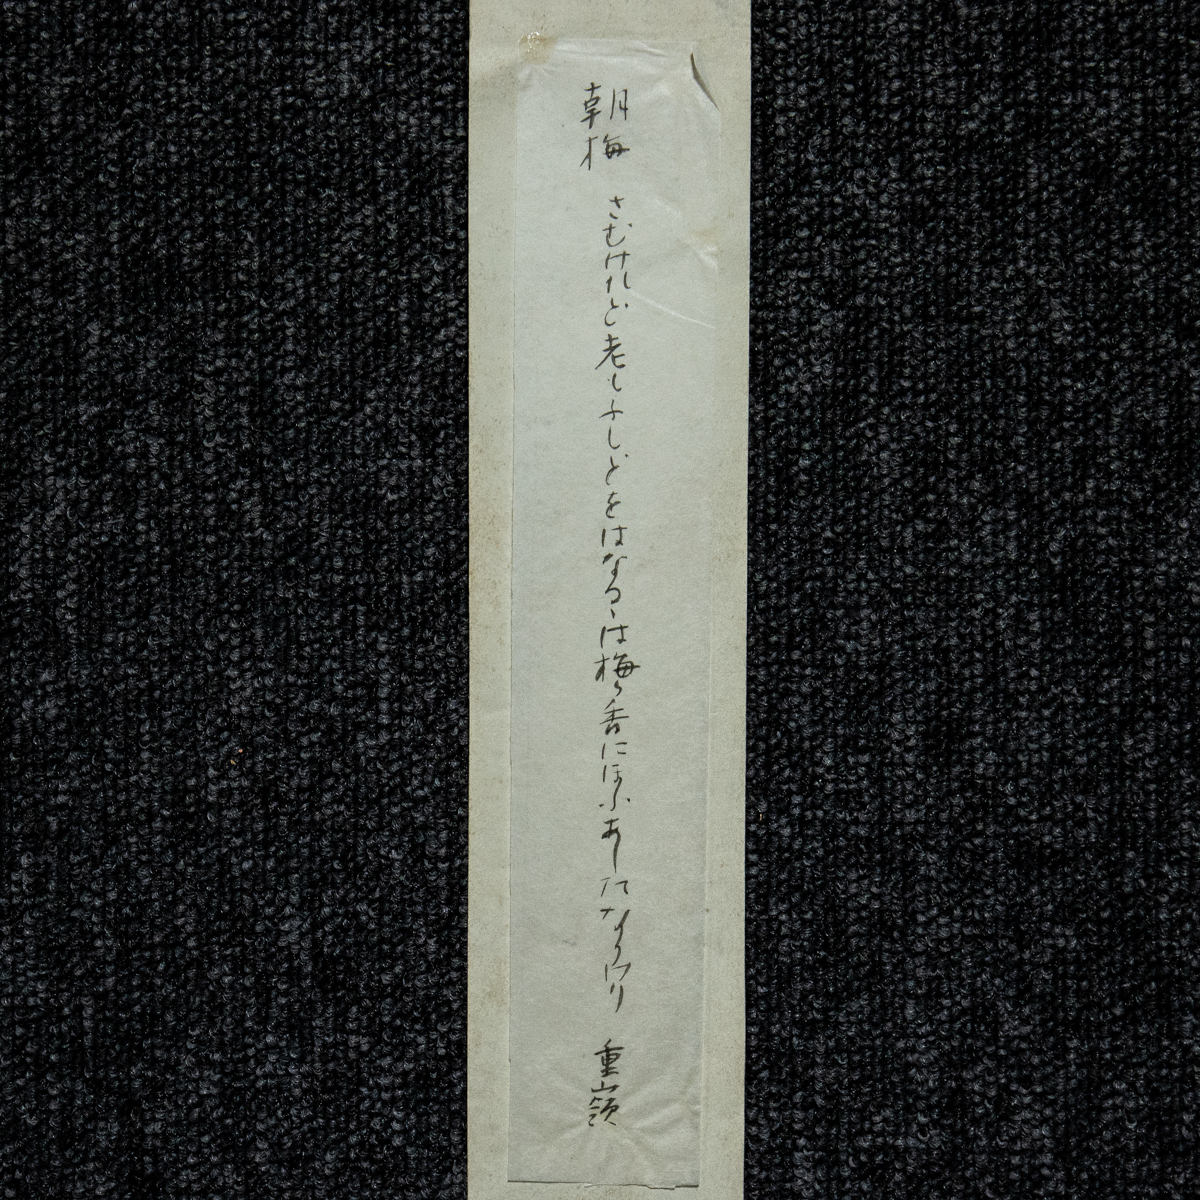 朝梅
さむけれど老もふしどをはなるゝは梅か香にほふあしたなりけり
重嶺